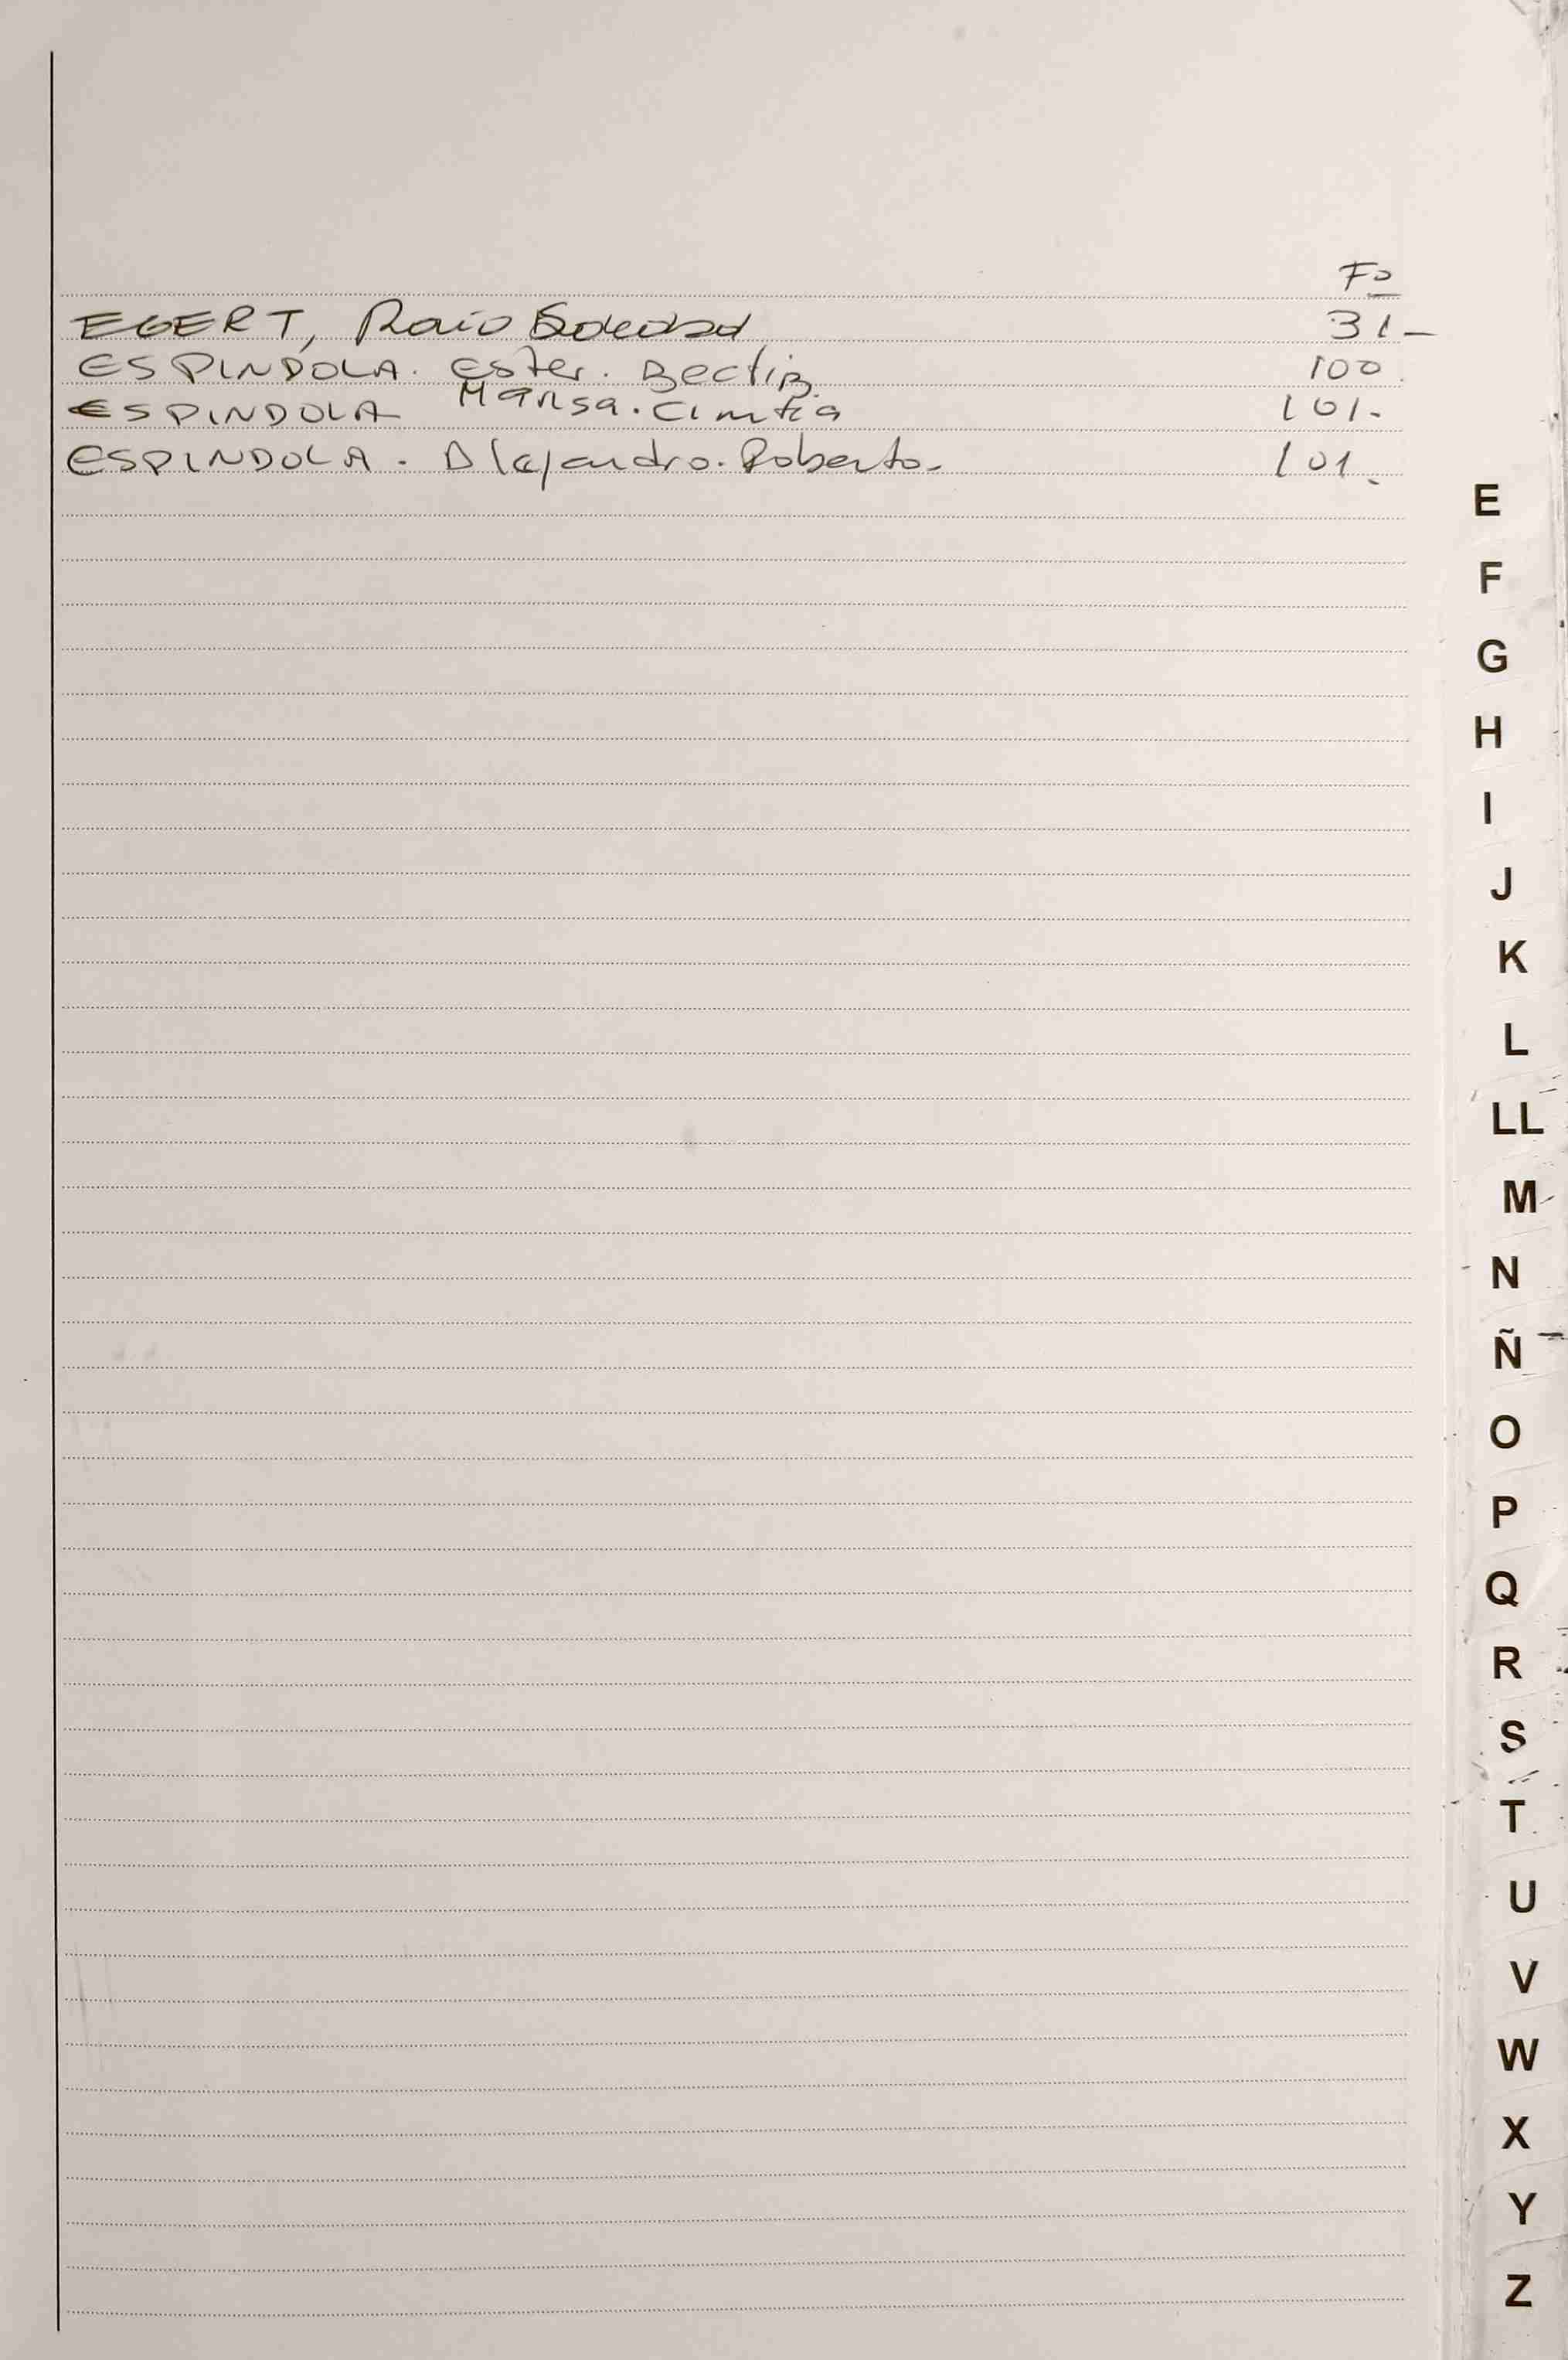 Fº
EGERT, Rocío Soledad 31-
ESPINDOLA. Ester. Beatriz 100.
ESPINDOLA Marisa. Cintia 101.-
ESPINDOLA. Alejandro. Roberto.- 101.-
E
F
G
H
I
J
K
L
LL
M
N
Ñ
O
P
Q
R
S
T
U
V
W
X
Y
Z